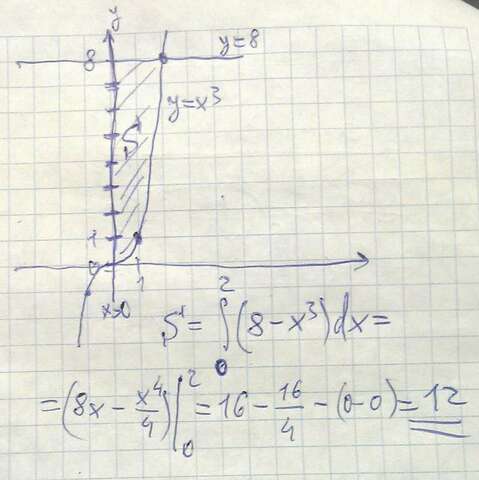 y
8
y=8
y=x³
S
1
0
1
x=0
S = ∫₀² (8-x³)dx=
=(8x - x⁴/4)|₀² = 16 - 16/4 - (0-0) = 12